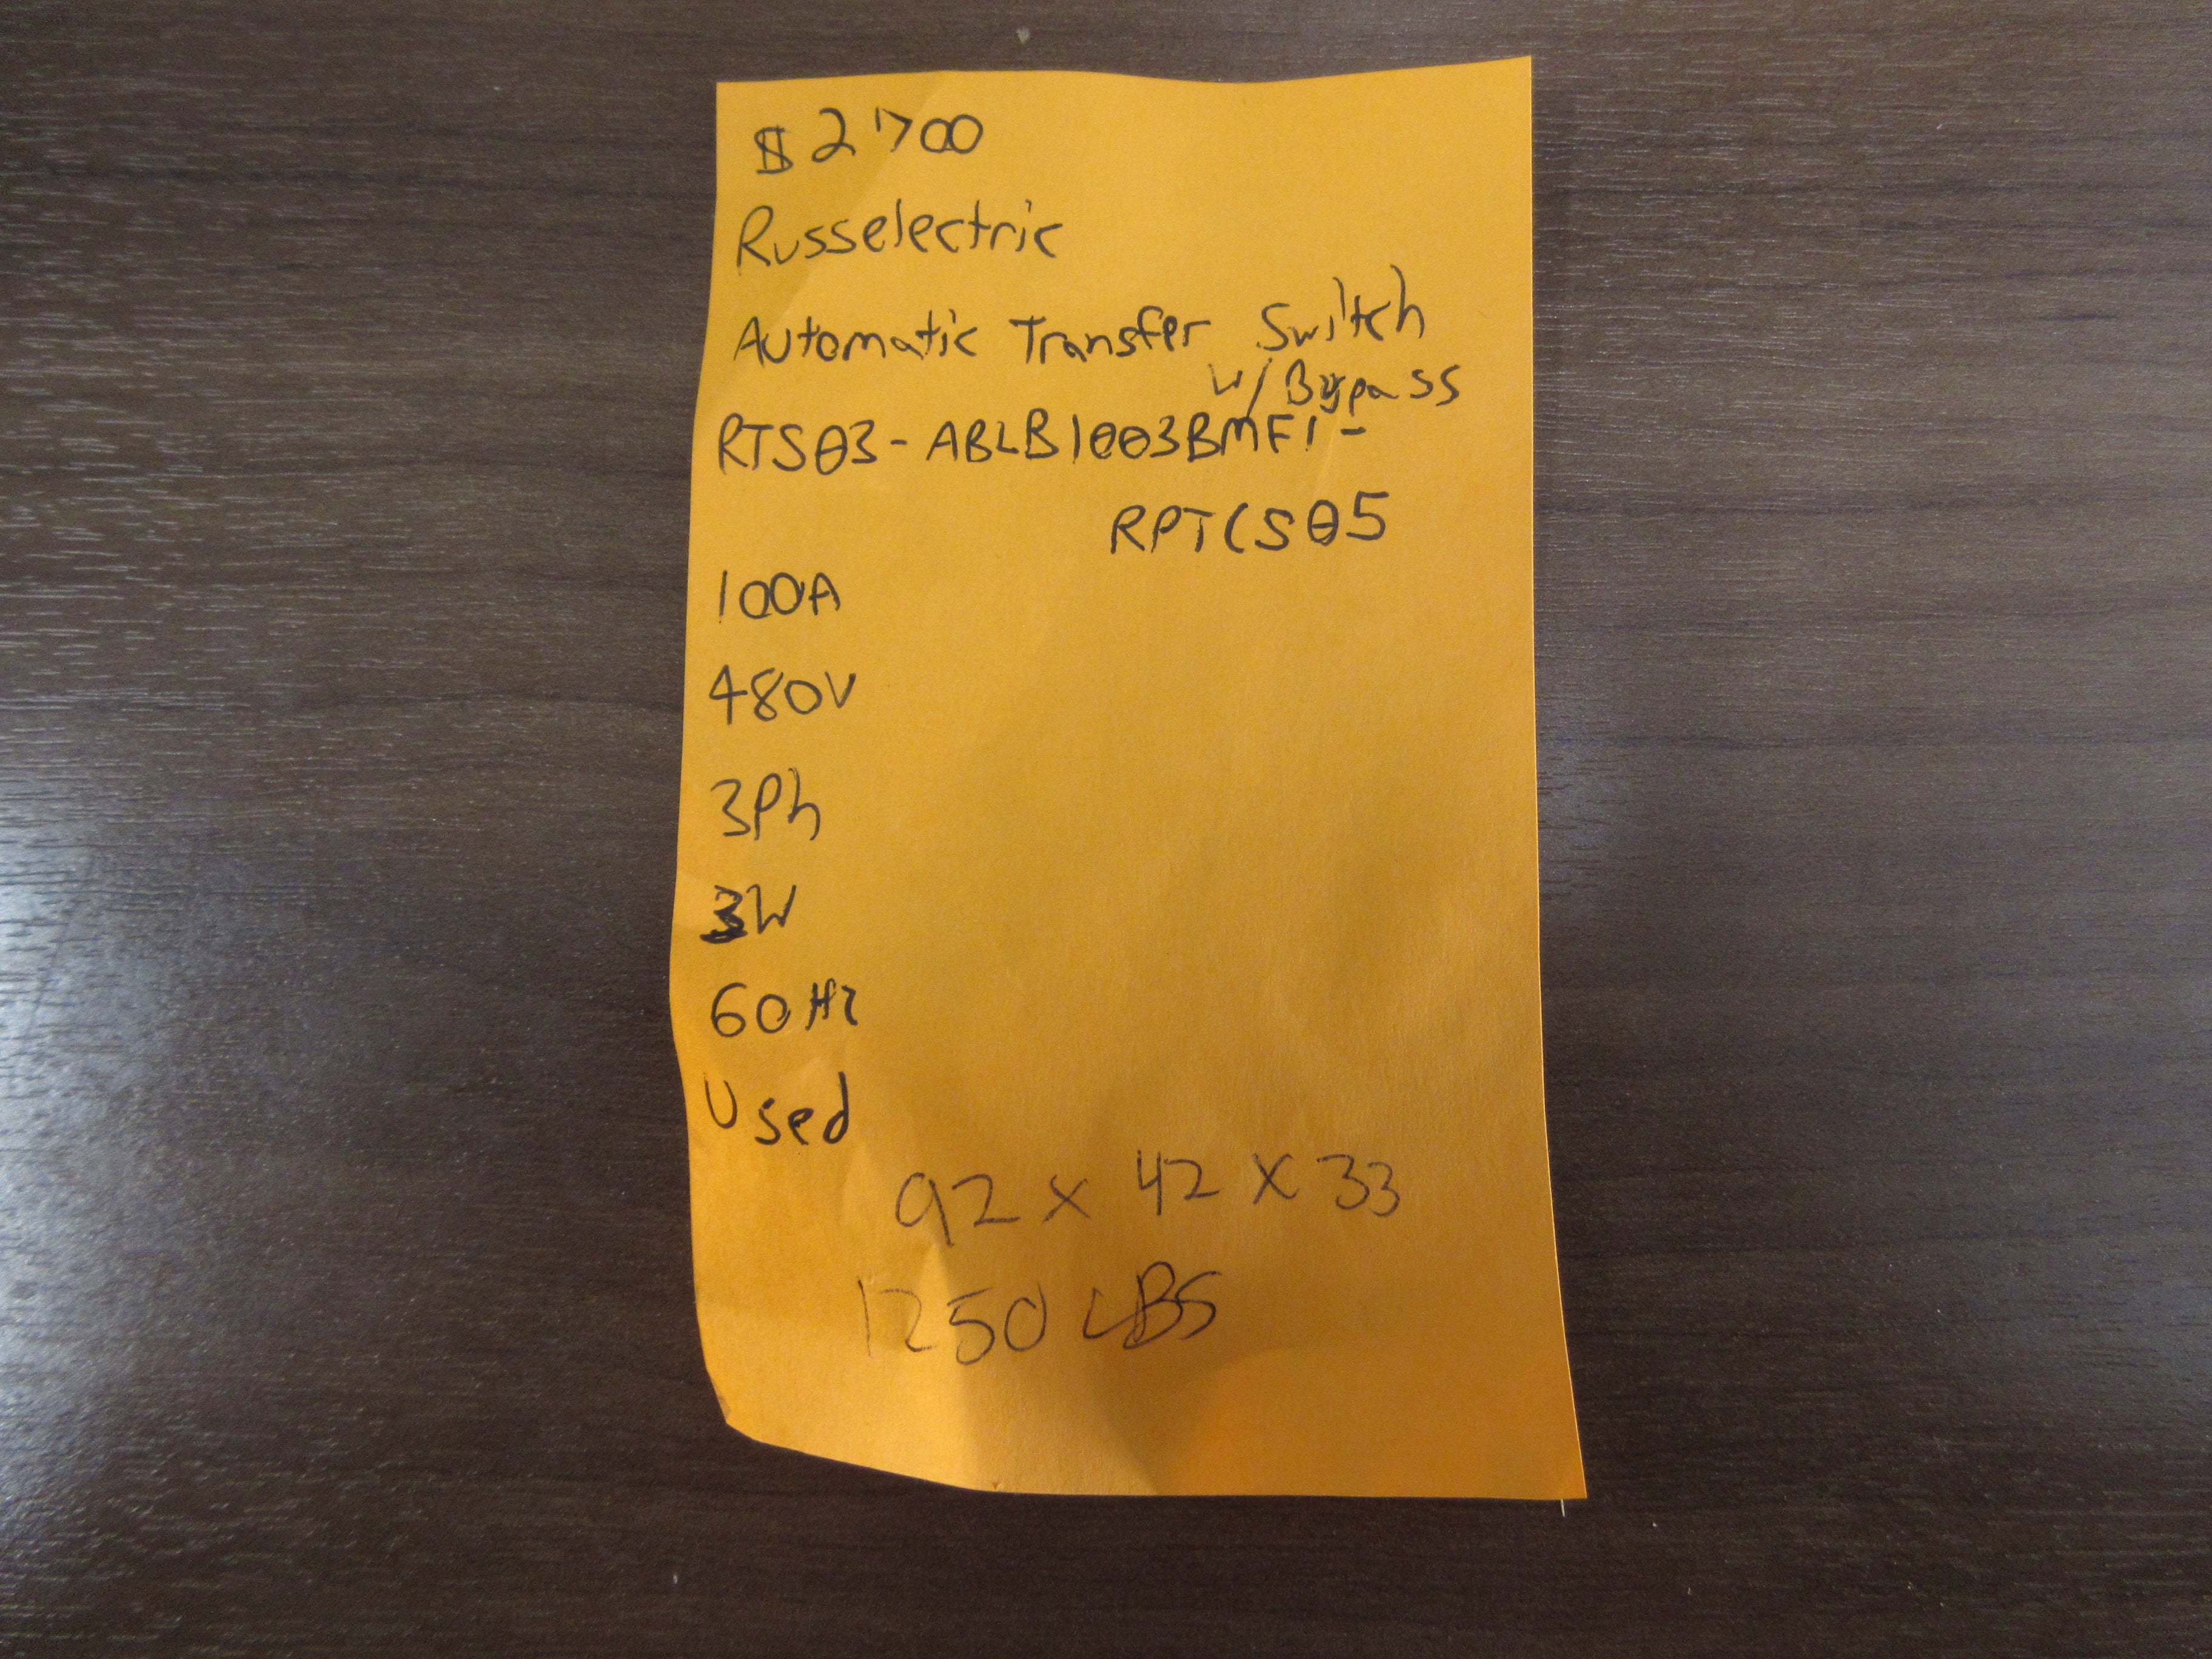 $2700
Russelectric
Automatic Transfer Switch
w/ Bypass
RTS03-ABLB1003BMF1-
RPTCS05
100A
480V
3Ph
3W
60Hz
Used
92 x 42 x 33
1250 LBS